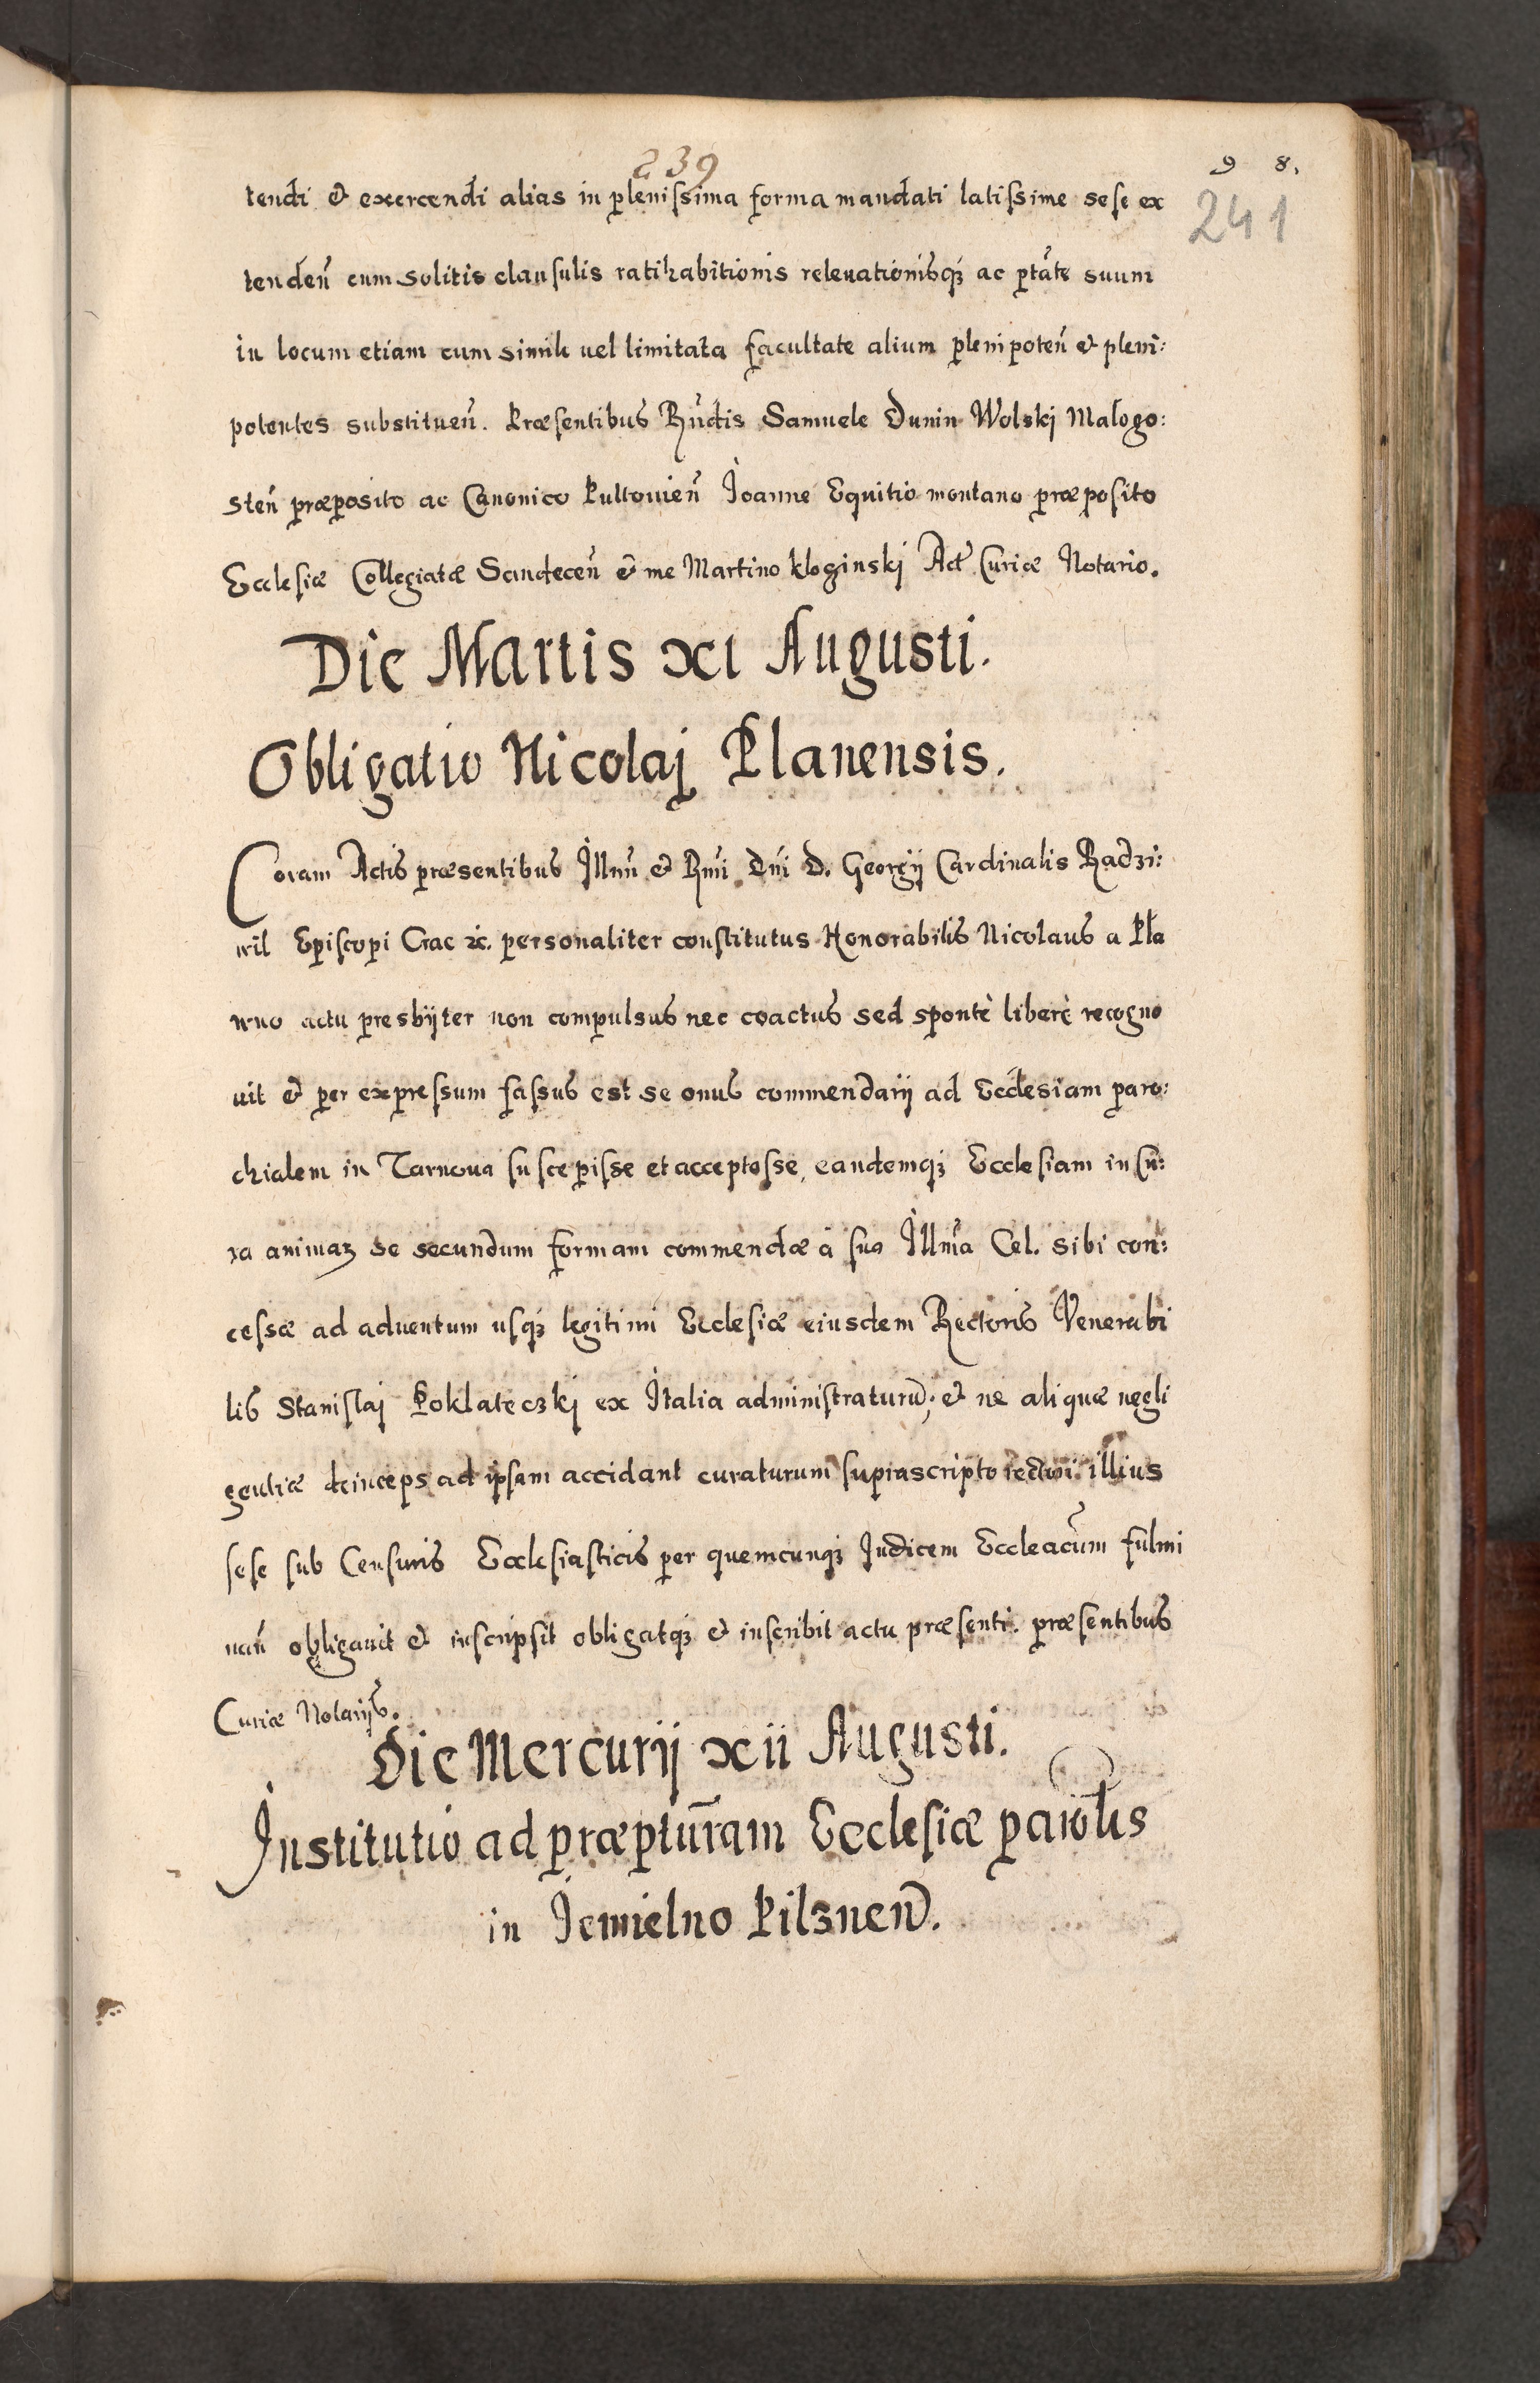 239
9 8.
241
tendi & exercendi alias in plenissima forma mandati latissime sese ex
tendeñ cum solitis clausulis ratihabitionis releuationisq3 ac ptãte suum
in locum etiam cum simili uel limitata facultate alium plenipoteñ & pleni:
potentes substitueñ. Præsentibus Rñdis Samuele Dunin Wolski Malogo:
steñ præposito ac Canonico Pultouieñ Joanne Equitio montano præposito
Ecclesiæ Collegiatæ Sandeceñ & me Martino Kloginski Act Curiæ Notario.
Die Martis xi Augusti.
Obligatio Nicolaj Planensis.
Coram Actis præsentibus Illmi & Rmi Dni D. Georgij Cardinalis Radzi:
wil Episcopi Crac &c. personaliter constitutus Honorabilis Nicolaus a Pla
wno actu presbijter non compulsus nec coactus sed spontè liberè recogno
uit & per expressum fassus est se onus commendarij ad Ecclesiam paro:
chialem in Tarnoua suscepisse et acceptosse, eandemq3 Ecclesiam in cu:
ra animaȝ se secundum formam commendæ à sua Illma Cel. sibi con:
cessæ ad aduentum usq3 legitimi Ecclesiæ eiusdem Rectoris Venerabi
lis Stanislaj Poklateczkj ex Italia administraturũ; & ne aliquæ negli
gentiæ deinceps ad ipsam accidant curaturum suprascripto rectori illius
sese sub Censuris Ecclesiasticis per quemcunq3 Judicem Eccleacum fulmi
nañ obligauit & inscripsit obligatq3 & inscribit actu præsenti. præsentibus
Curiæ Notarijs.
Die Mercurij xii Augusti.
Institutio ad præpturam Ecclesiæ parolis
in Jemielno Pilzneñ.